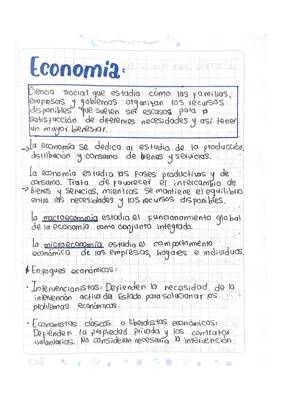 Economia:
Ciencia social que estudia cómo las familias,
empresas y gobiernos organizan los recursos
disponibles que suelen ser escasos para a
satisfacción de deerentes necesidades y asi tener
un mayor bienestar.
→ la economía se dedica al estudio de la producción,
distribución y consumo de bienes y servicios.
La economía estudia las fases productivas y de
consumo. Trata de favorecer el intercambio de
bienes y servicios, mientras se mantiene el equilibrio
entre las necesidades y los recursos disponibles.
la macroeconomía estudia el funcionamiento global
de la economía como conjunto integrado.
La microeconomía estudia el comportamiento
económico de las empresas, hogares e individuos.
Enfoques económicos:
· Intervencionistas: Defienden la necesidad de la
intervención activa del Estado para solucionar los
problemas económicos.
· Economistas clásicos o liberalistas económicos:
Defienden la propiedad privada y los contratos
voluntarios. No consideran necesaria la intervención